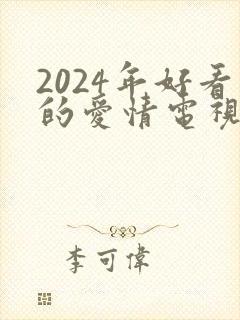 2024年好看
的愛情電視
李可偉